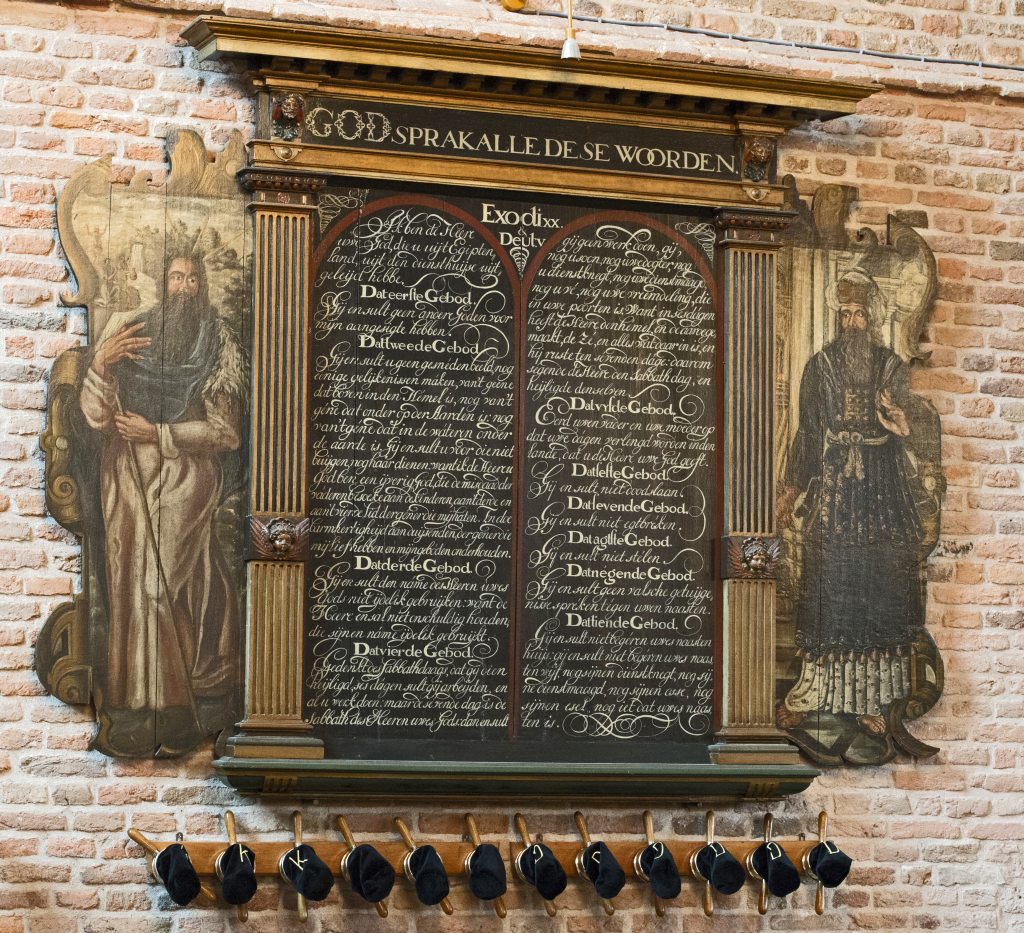 GOD SPRAK ALLE DESE WOORDEN.
Exodi xx.
&
Deut v
Ik ben de Heere
uwe God, die u uijt Egipten
land, uijt den diensthuijse uijt
geleijd hebbe.
Dat eerste Gebod.
Gij en sult geen ander Goden voor
mijn aangesigte hebben.
Dat tweede Gebod.
Gij en sult u geen gesneden beeld, nog
eenige gelijkenissen maken, van't gene
dat boven in den Hemel is, nog van't
gene dat onder op der Aarden is, nog
van't gene dat in de wateren onder
de aarde is. Gij en sult u voor die niet
buijgen, nog haar dienen: want ik de Heere u
God ben een ijverig God, die de misdaad der
vaderen besoeke aan de kinderen, aan't derde en
aan't vierde lid dergener die mij haten. En doe
barmhertigheijd aan duijsenden dergener die
mij lief hebben en mijn geboden onderhouden.
Dat derde Gebod.
Gij en sult den name des Heeren uwes
Gods niet ijdelik gebruijken: want de
Heere en sal niet onschuldig houden,
die sijnen name ijdelik gebruijkt.
Dat vierde Gebod.
Gedenkt des Sabbath daags, dat gij dien
heijligd, ses dagen sult gij arbeijden, en
al u werk doen: maar de sevende dag is de
Sabbath des Heeren uwes Gods, dan en sult
gij gaan werk doen, gij
nog u soon, nog uwe dogter, nog
u dienstknegt, nog uwe dienstmaagd,
nog u vé, nog uwe vreemdeling, die
in uwe poorten is: Want in ses dagen
heeft de Heere den hemel, en d'aarde ge
maakt, de Zé, en alles wat daar in is, en
hij ruste ten sevenden dage: daarom
segende de Heere den Sabbath dag, en
heijligde denselven.
Dat vyfde Gebod.
Eerd uwen vader en uwe moeder op
dat uwe dagen verlengd worden in den
lande, dat u de Heere uwe God geeft.
Dat seste Gebod.
Gij en sult niet doodslaan.
Dat sevende Gebod.
Gij en sult niet egtbreken.
Dat agtste Gebod.
Gij en sult niet stelen.
Dat négende Gebod.
Gij en sult geen valsche getuijge,
nisse spreken tegen uwen naasten.
Dat tiende Gebod.
Gij en sult niet begeren uwes naasten
huijs: gij en sult niet begeren uwes naas
ten wijf, nog sijnen dienstknegt, nog sij,
ne dienstmaagd, nog sijnen osse, nog
sijnen esel, nog iet dat uwes naas
ten is.
K
K